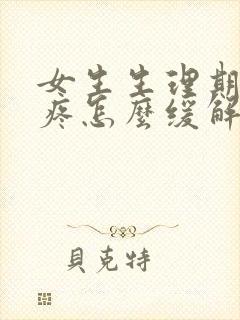 女生生理期
疼怎麼缓解
貝克特